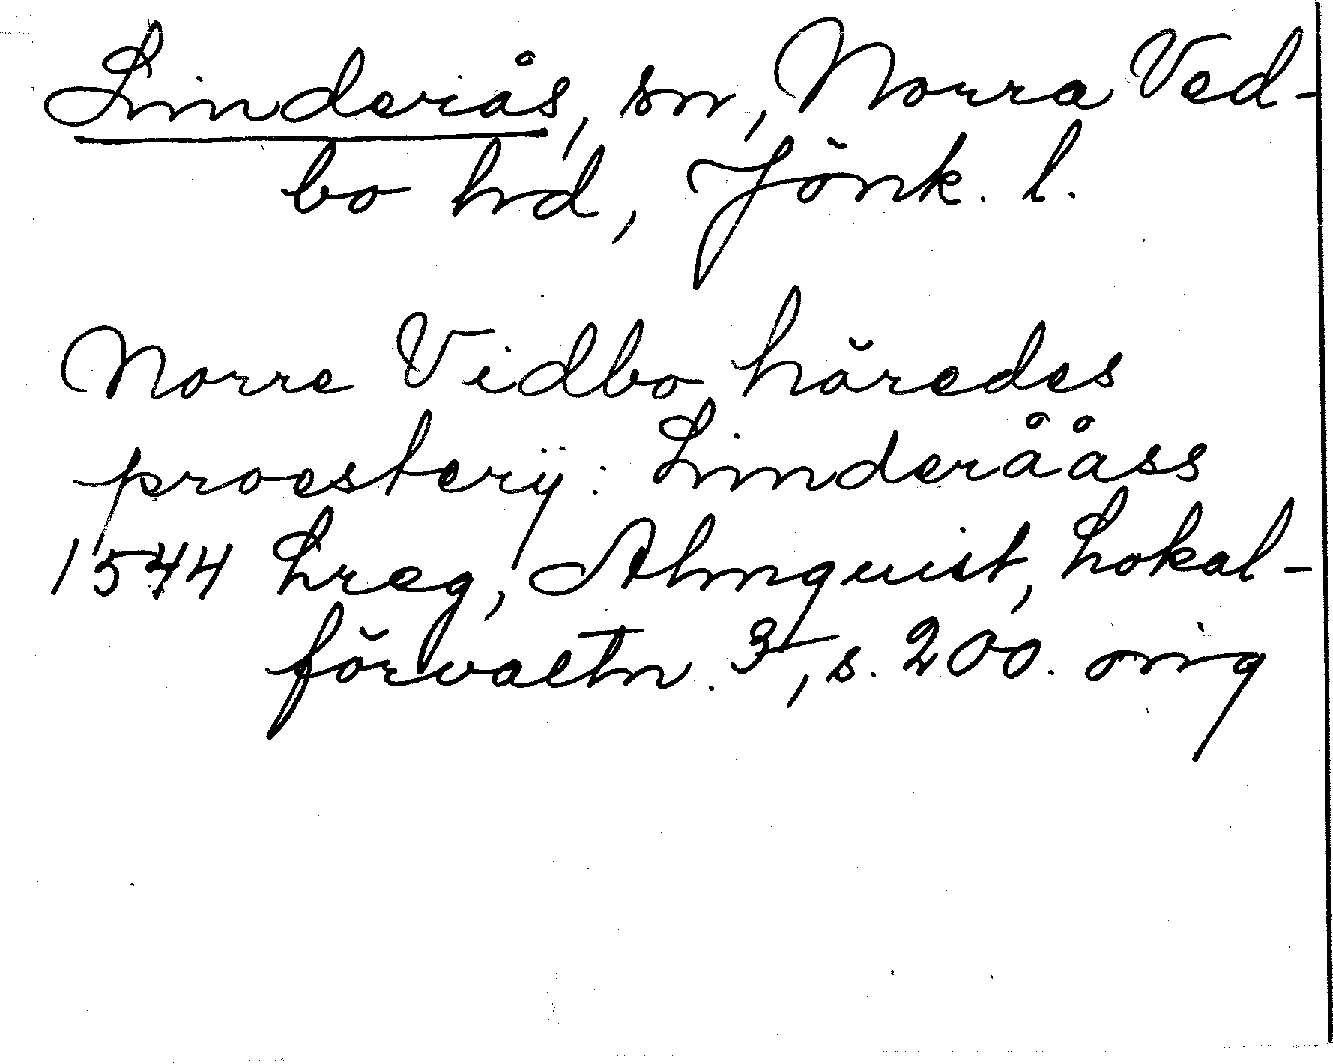 Linderås, sn, Norra Ved-
bo hd, Jönk. l.
Norre Vidbo häredes
proesterij: Linderååss
1544 Lreg, Almquist, Lokal-
förvaltn. 3, s. 200. orig